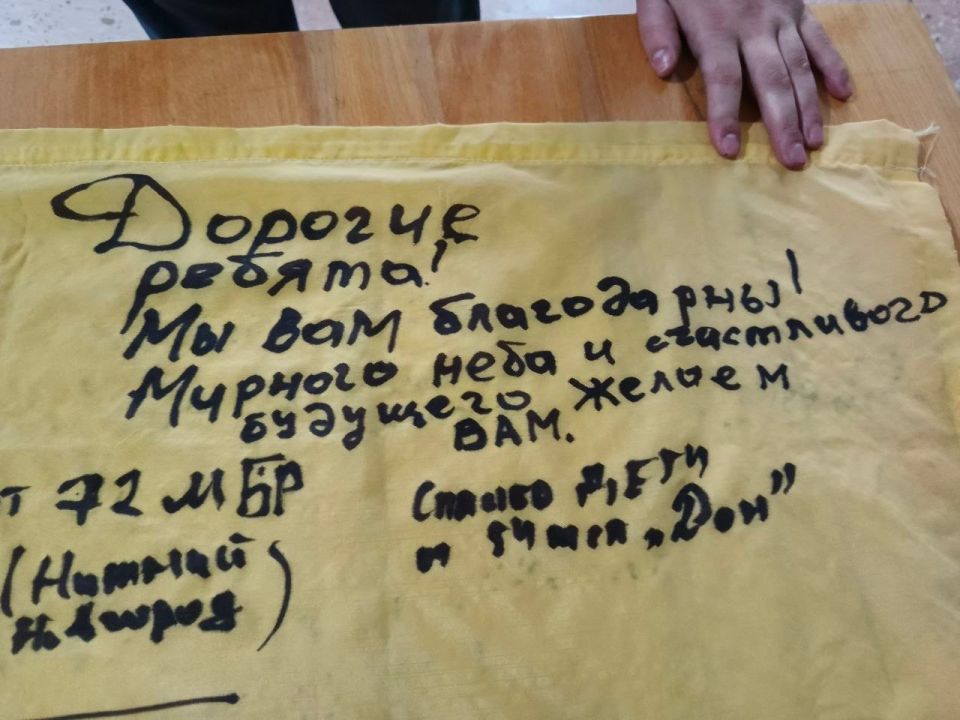 Дорогие
ребята!
Мы вам благодарны!
Мирного неба и счастливого
будущего желаем
ВАМ.
от 72 МБР
(Нижний
Новгород)
Спасибо ДЕТИ
и "Дон"